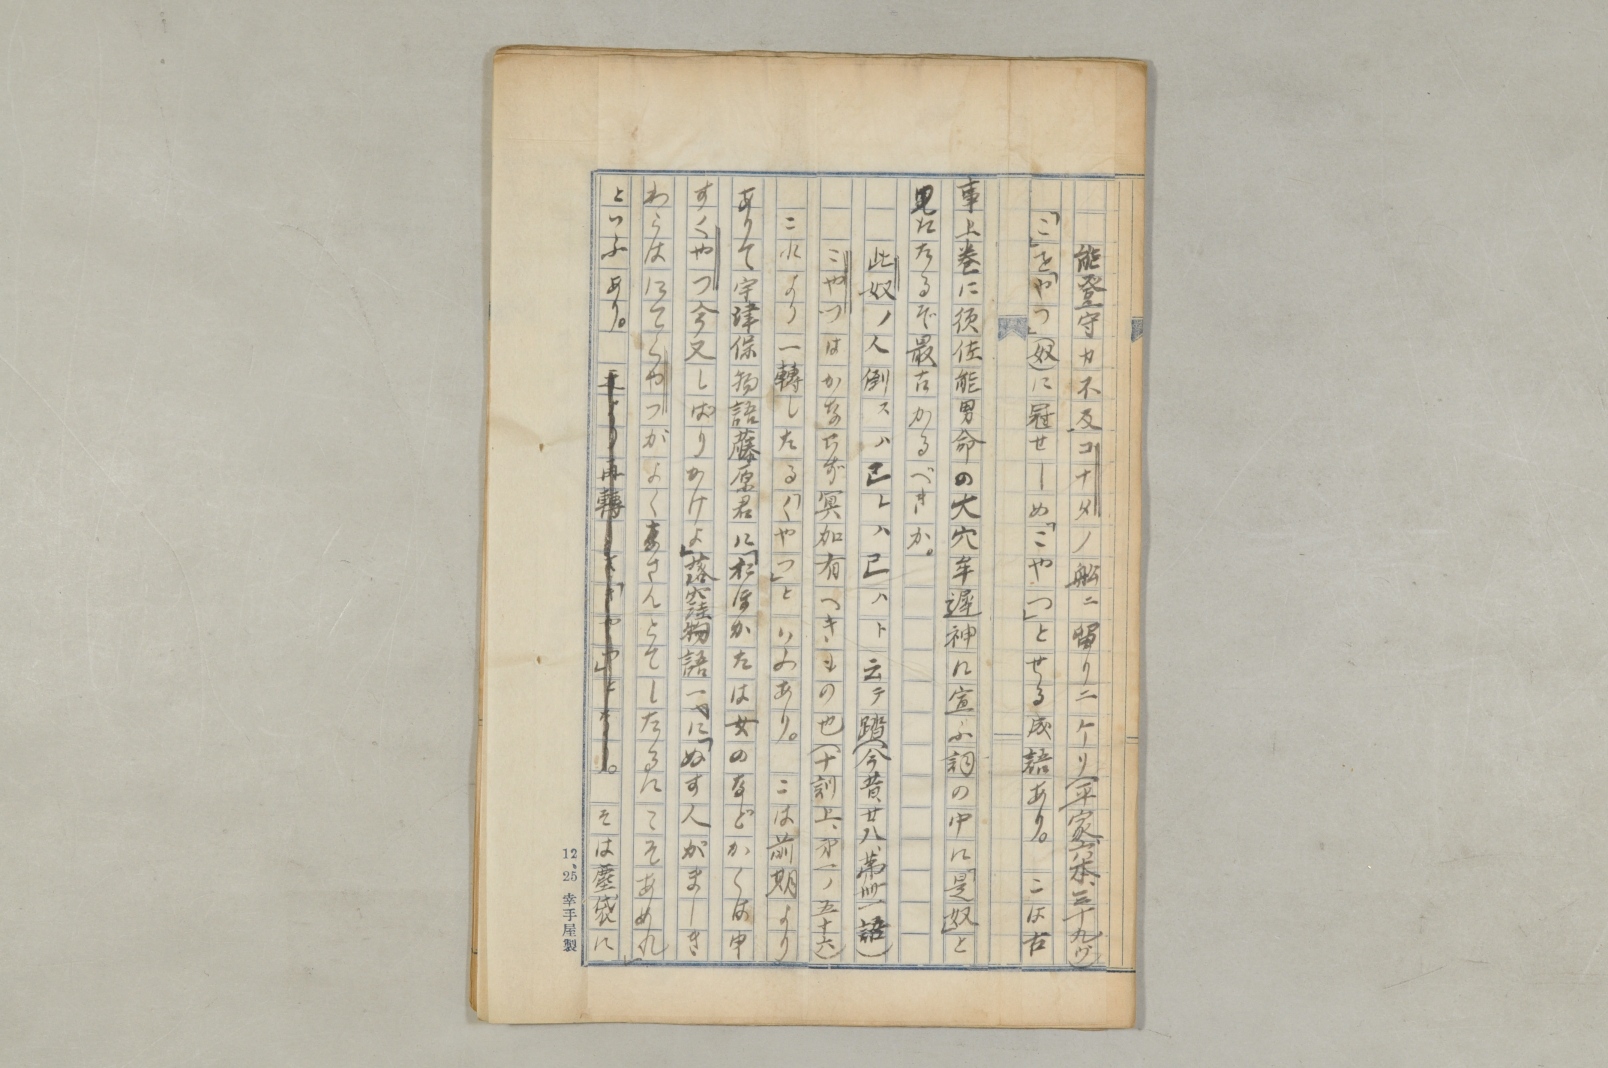 能登守カ不及コナタノ船ニ留リニケリ(平家六本、三十九ヴ)
「こ」を「やつ」(奴)に冠せしめ「こやつ」とせる成語あり。こは古
事上巻に須佐能男命の大穴牟遅神に宣ふ詞の中に「是奴」と
見えたるぞ最古かるべきか。
此奴ノ人倒スハ己レハ己ハト云テ踏(今昔廿八、第卌一語)
こやつはかならず冥加有へきもの也(十訓上、第一ノ五十六)
これより一轉したる「くやつ」といふあり。こは前期より
ありて宇津保物語藤原君に「おほかたは女のなどかくは申
すくやつ今又しばりかけよ」落窪物語一に「ぬす人がましき
わらはにてくやつがよくあさんとてしたるにこそあめれ」
といふあり。そは塵袋に
12、25 幸手屋製